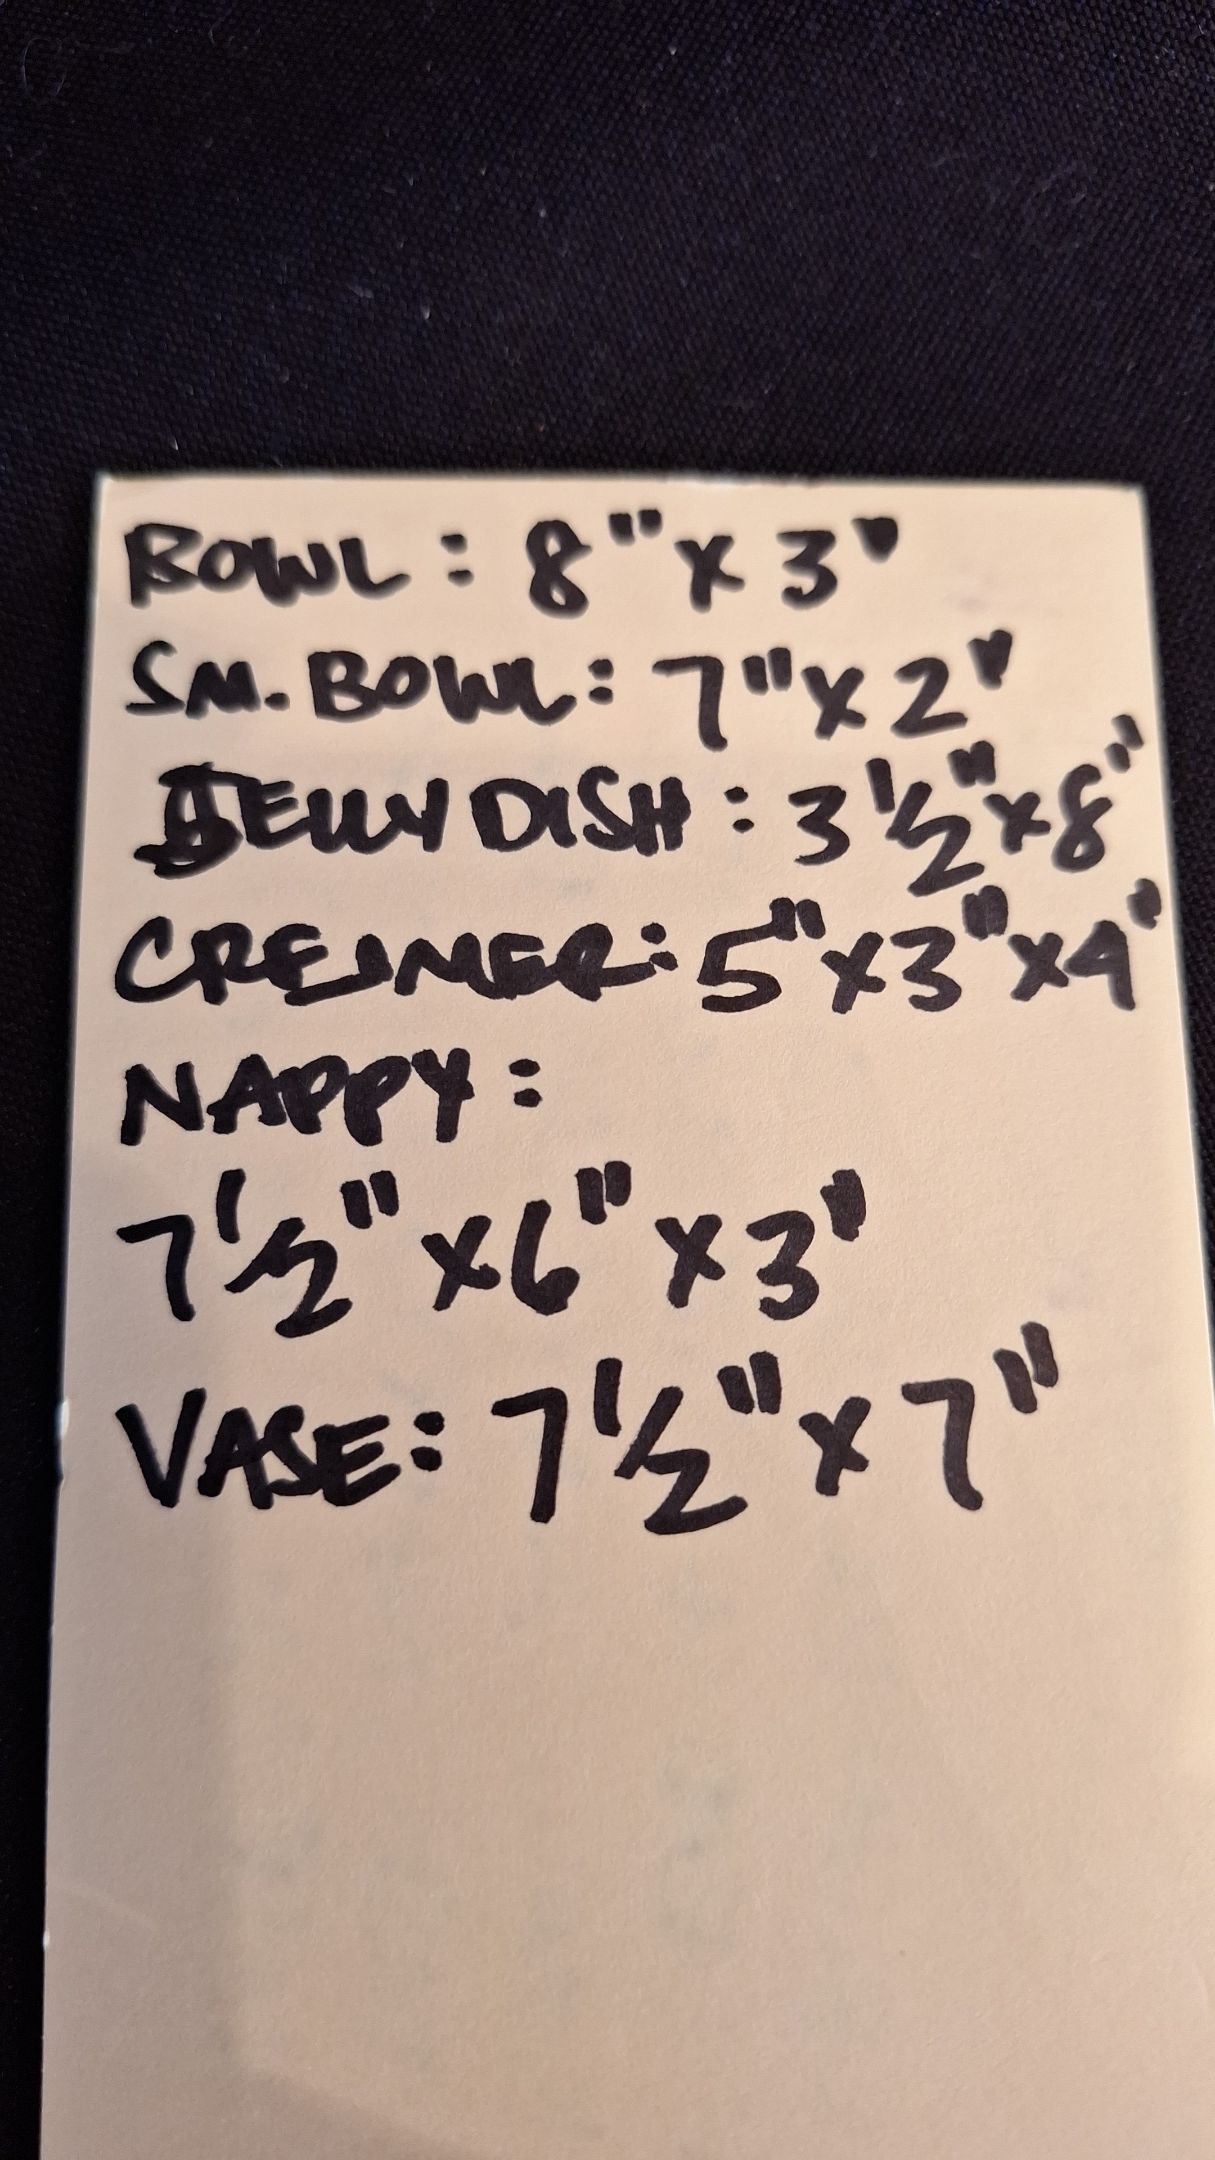 BOWL: 8" x 3"
SM. BOWL: 7" x 2"
JELLY DISH: 3 1/2" x 8"
CREAMER: 5" x 3" x 4"
NAPPY:
7 1/2" x 6" x 3"
VASE: 7 1/2" x 7"